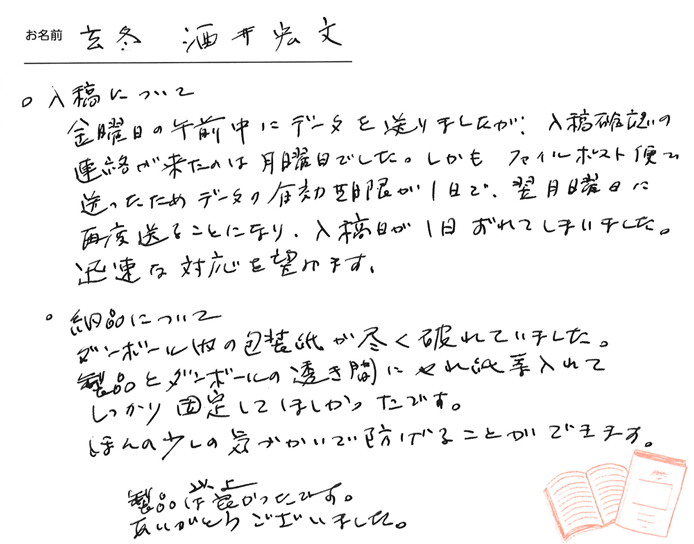 お名前 玄冬 酒井宏文
○ 入稿について
金曜日の午前中にデータを送りましたが、入稿確認の
連絡が来たのは月曜日でした。しかも ファイルポスト便で
送ったためデータの有効期限が1日で、翌月曜日に
再度送ることになり、入稿日が1日ずれてしまいました。
迅速な対応を望みます。
○ 納品について
ダンボール内の包装紙が尽く破れていました。
製品とダンボールの透き間にやれ紙等入れて
しっかり固定してほしかったです。
ほんの少しの気づかいで防げることができます。
製品は良かったです。
ありがとうございました。